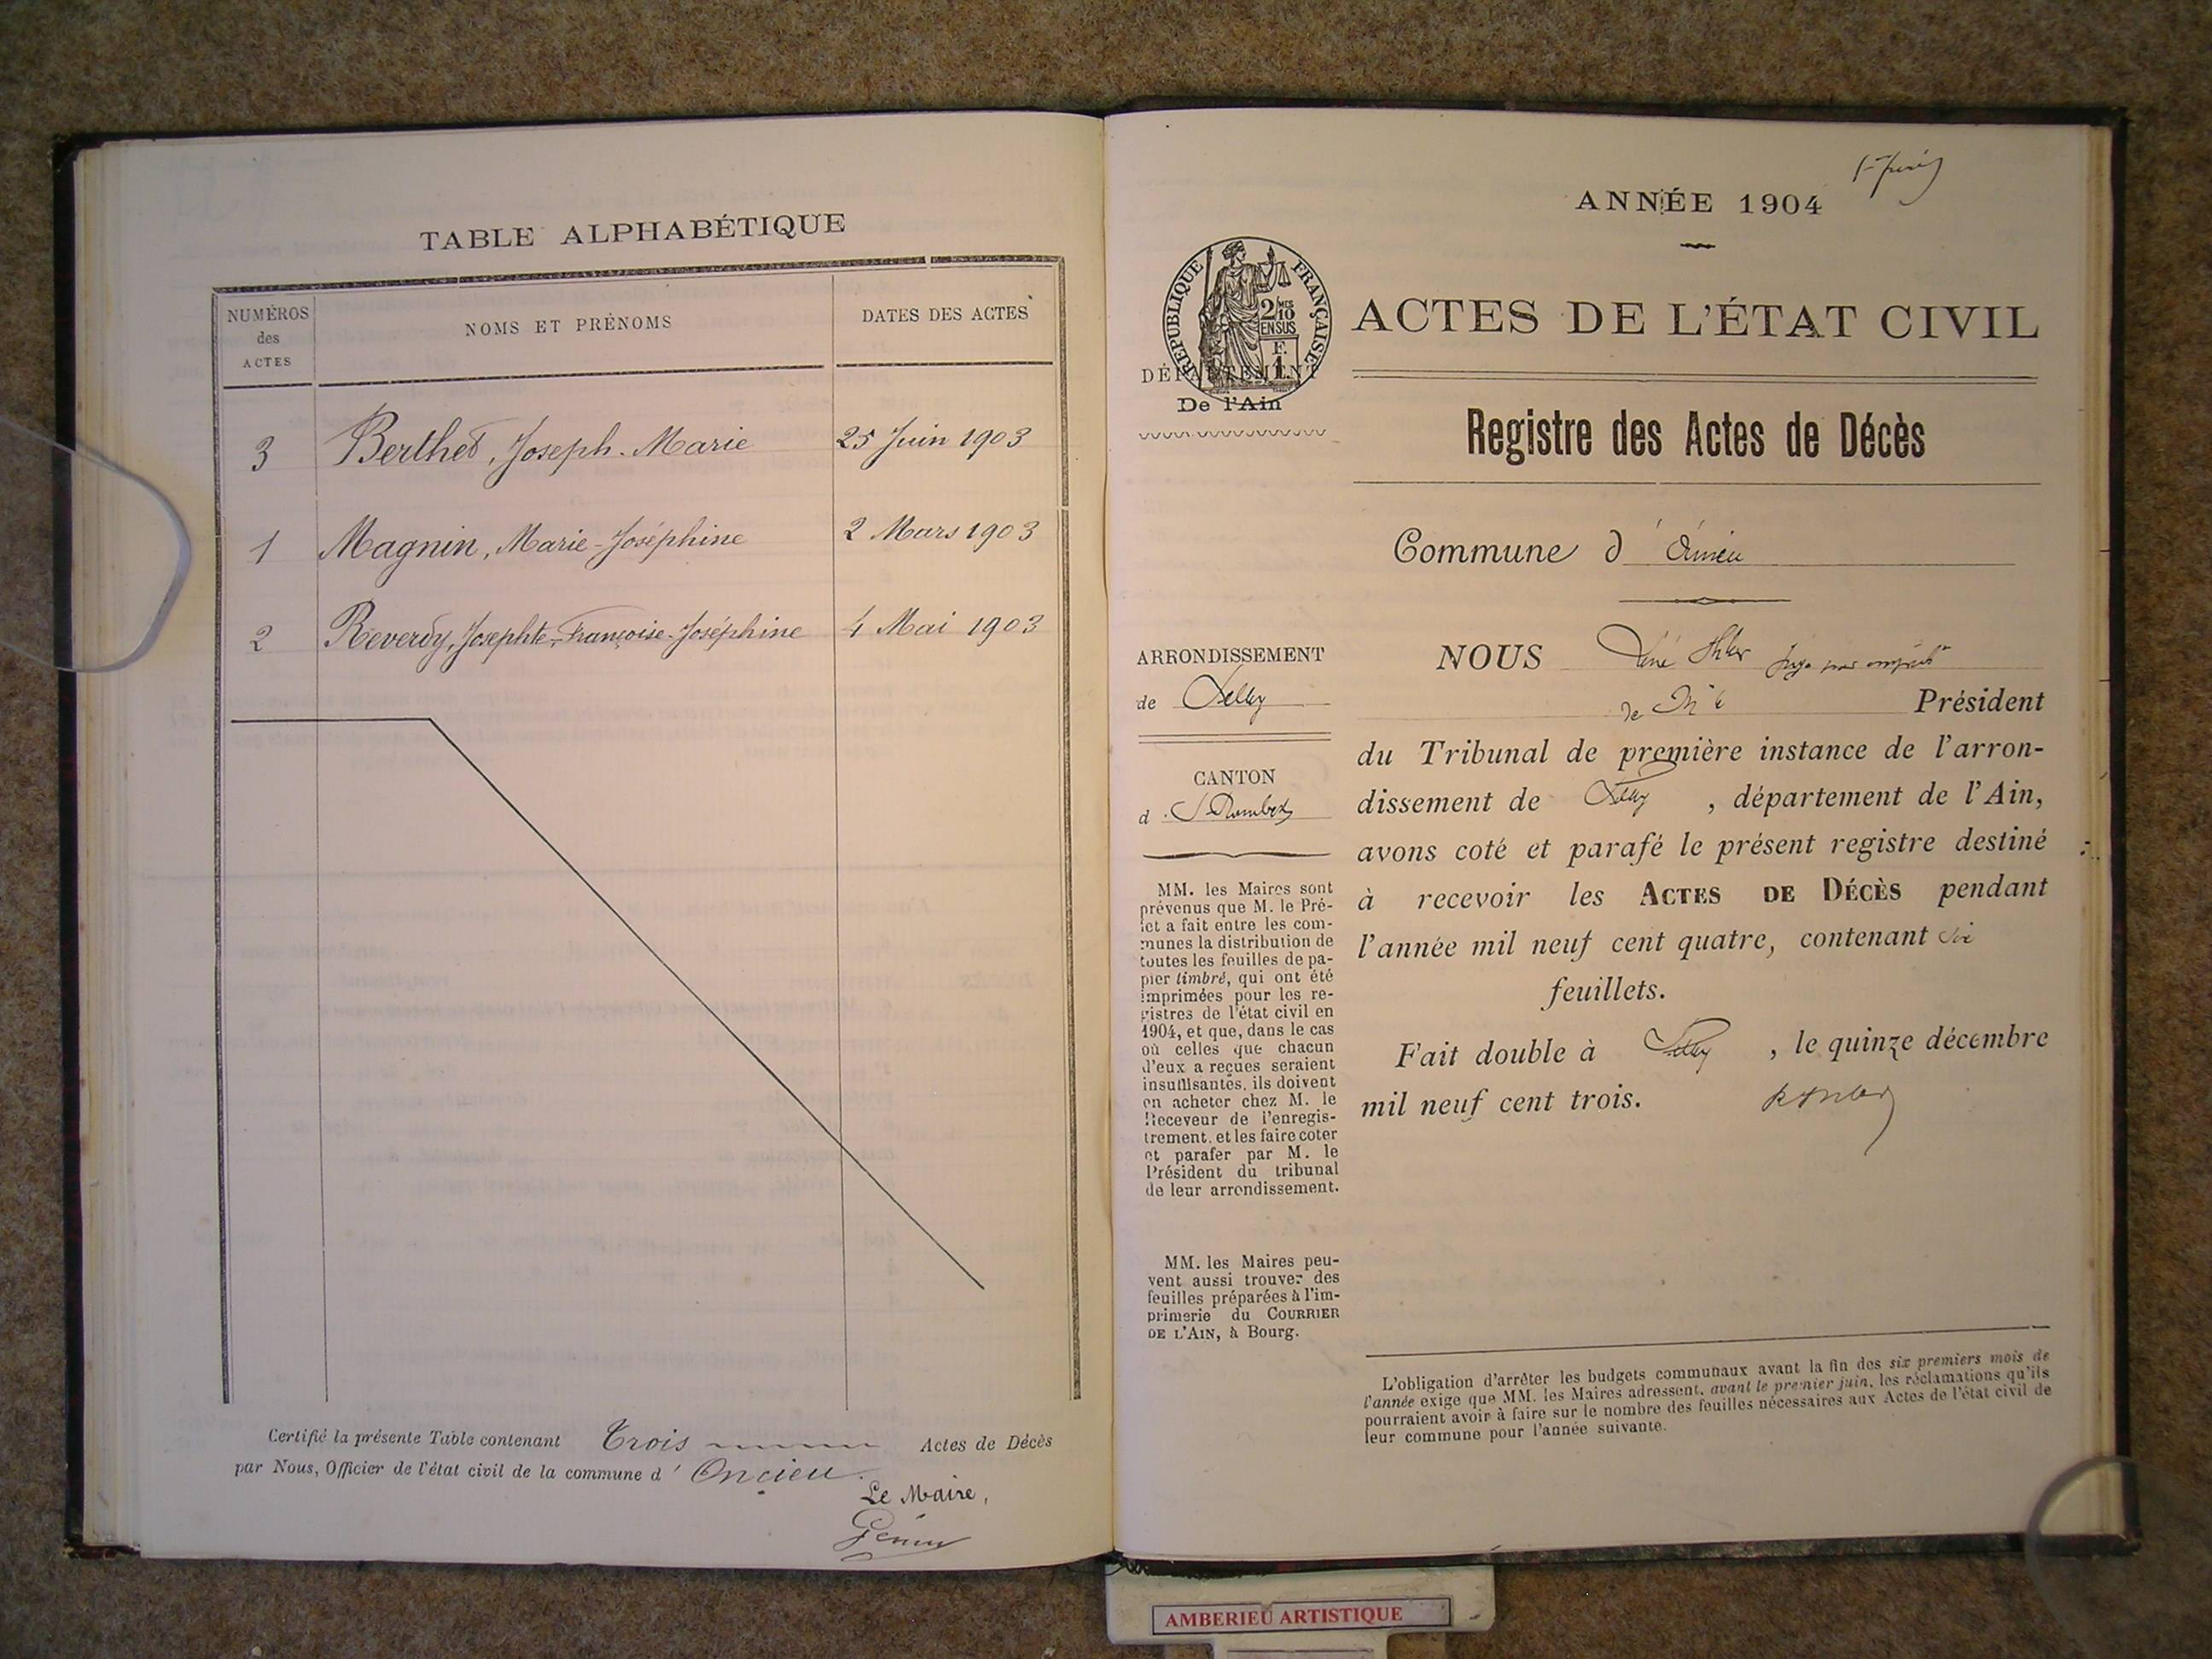 TABLE ALPHABÉTIQUE
NUMÉROS
des
ACTES
NOMS ET PRÉNOMS
DATES DES ACTES
3 Berthet, Joseph-Marie 25 Juin 1903
1 Magnin, Marie-Joséphine 2 Mars 1903
2 Reverdy, Josephte-Françoise-Joséphine 4 Mai 1903
Certifié la présente Table contenant Trois Actes de Décès
par Nous, Officier de l'état civil de la commune d' Oncieu.
Le Maire,
Génin
ANNÉE 1904
RÉPUBLIQUE FRANÇAISE
2/10 MES
EN SUS
F.
1
ACTES DE L'ÉTAT CIVIL
DÉPARTEMENT
De l'Ain
Registre des Actes de Décès
Commune d' Oncieu
ARRONDISSEMENT
de Belley
CANTON
d St Rambert
MM. les Maires sont
prévenus que M. le Pré-
fet a fait entre les com-
munes la distribution de
toutes les feuilles de pa-
pier timbré, qui ont été
imprimées pour les re-
gistres de l'état civil en
1904, et que, dans le cas
où celles que chacun
d'eux a reçues seraient
insuffisantes, ils doivent
en acheter chez M. le
Receveur de l'enregis-
trement, et les faire coter
et parafer par M. le
Président du tribunal
de leur arrondissement.
MM. les Maires peu-
vent aussi trouver des
feuilles préparées à l'im-
primerie du COURRIER
DE L'AIN, à Bourg.
NOUS
Président
du Tribunal de première instance de l'arron-
dissement de Belley, département de l'Ain,
avons coté et parafé le présent registre destiné
à recevoir les ACTES DE DÉCÈS pendant
l'année mil neuf cent quatre, contenant six
feuillets.
Fait double à Belley, le quinze décembre
mil neuf cent trois.
L'obligation d'arrêter les budgets communaux avant la fin des six premiers mois de
l'année exige que MM. les Maires adressent, avant le premier juin, les réclamations qu'ils
pourraient avoir à faire sur le nombre des feuilles nécessaires aux Actes de l'état civil de
leur commune pour l'année suivante.
AMBERIEU ARTISTIQUE